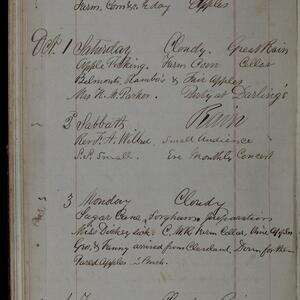 Farm, Corn &c to day Apples
Oct. 1 Saturday Cloudy. Great Rain
Apple Picking. Farm Corn Cellar
Belmont, Rambo's & Fair Apples
Mrs H. M. Parker. Party at Darling's
2 Sabbath Rain
Rev. F. A. Wilbed Small Audience
S.S. Small. Eve Monthly Concert
3 Monday Cloudy
Sugar Cane, Sorghum, preparation
Miss Dickey sick. C M R Farm Cellar.
Geo. & Fanny arrived from Cleveland.
Pared Apples